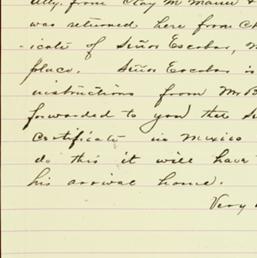 atty. from Clay M
was returned here from Ch
icate of Señor Escobar, M
place. Señor Escobar is
instructions from Mr. B
forwarded to you the S
certificate in Mexico
do this it will have
his arrival home.
Very